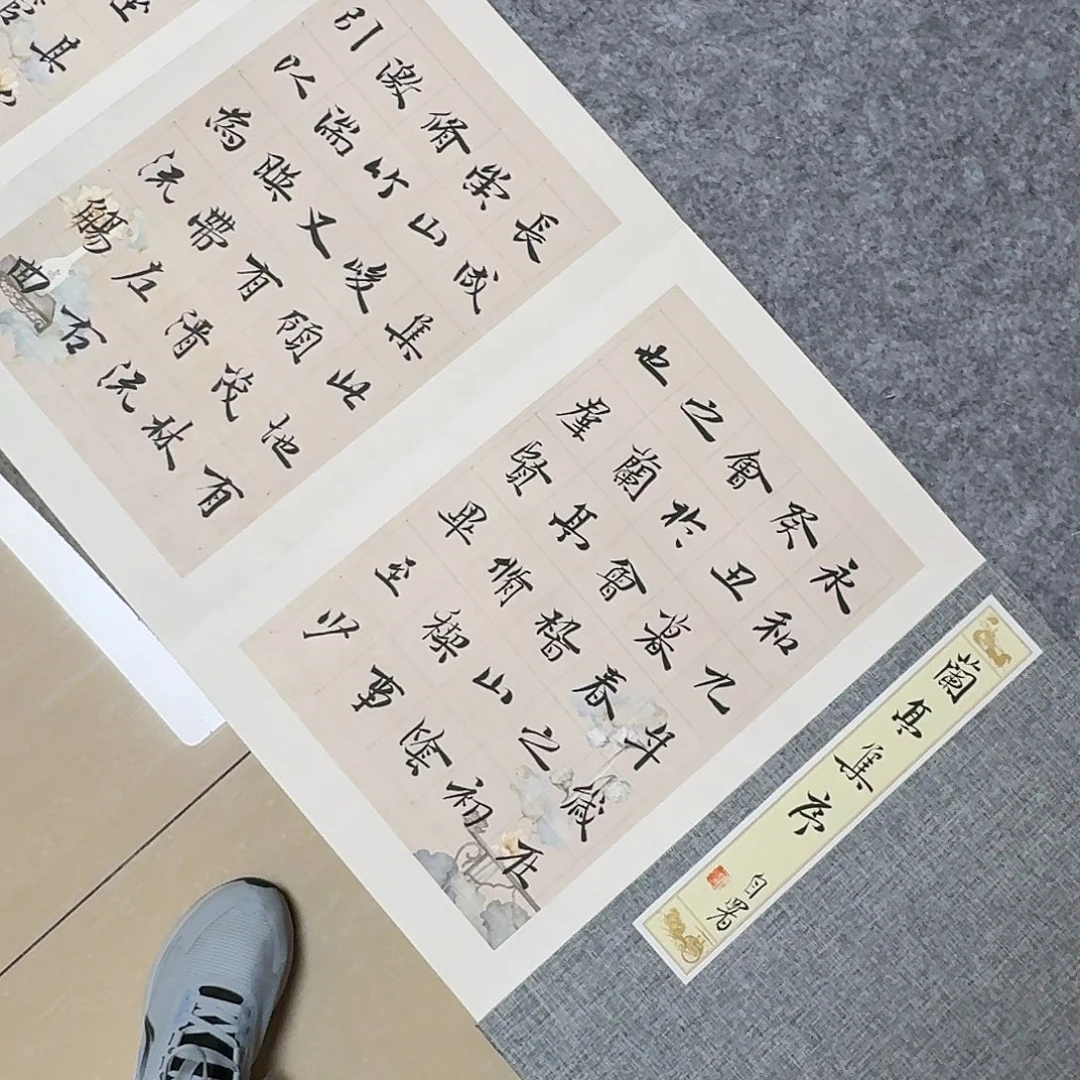 蘭亭集序
自署
永和九年歲在
癸丑暮春之初
會於會稽山陰
之蘭亭脩禊事
也羣賢畢至少
長咸集此地有
崇山峻領茂林
脩竹又有清流
激湍暎帶左右
引以為流觴曲
其